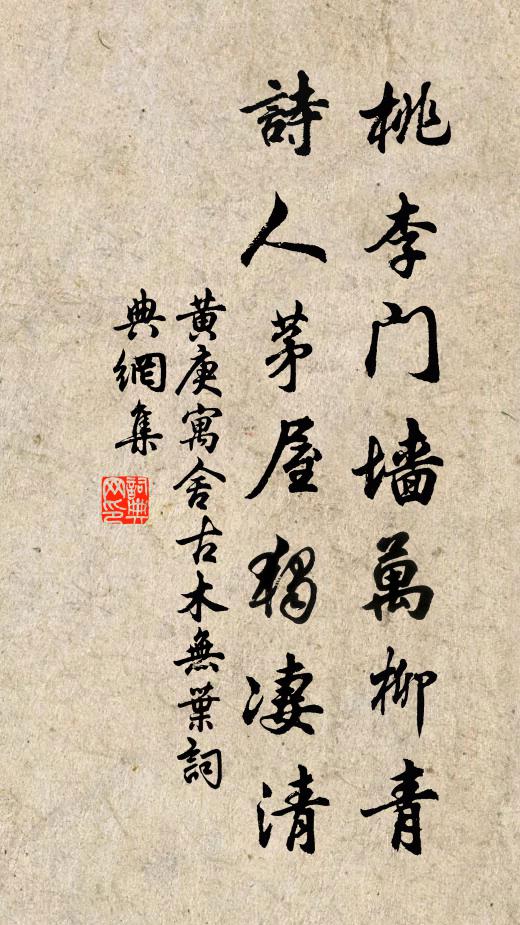 桃李門墙萬柳青
詩人茅屋獨凄清
黄庚寓舍古木無葉詞
典網集
詞典
网印